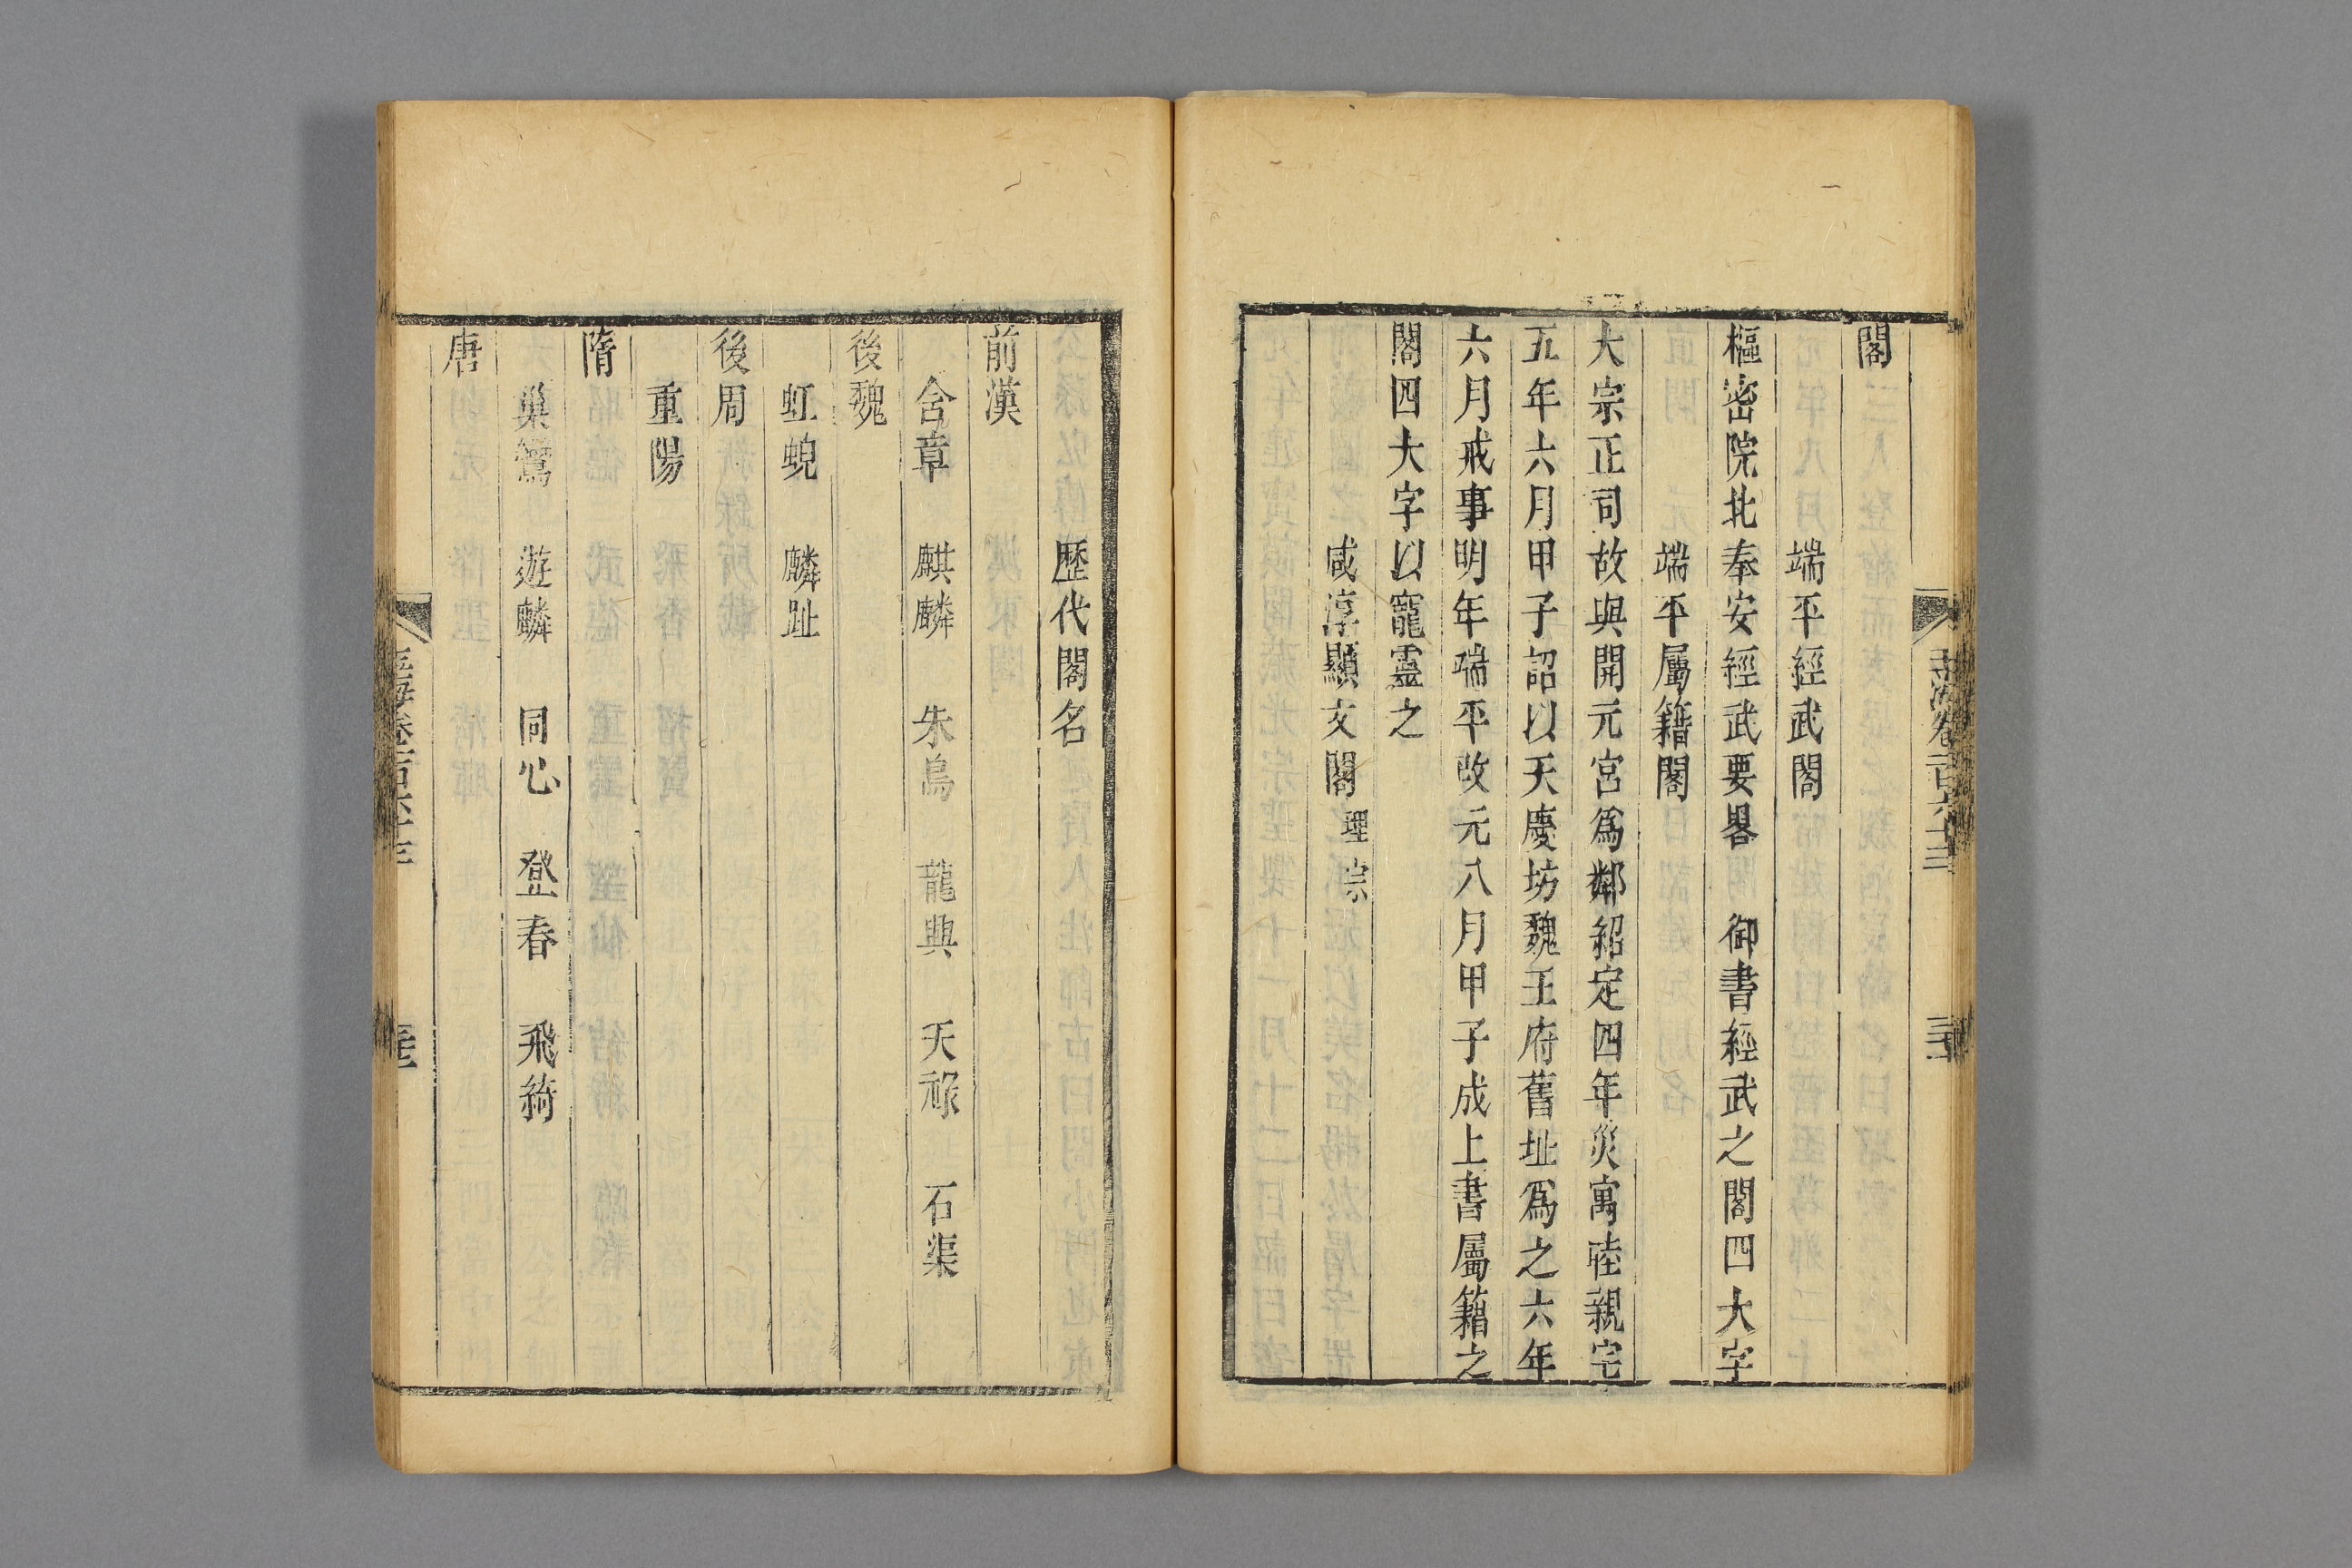 閣
端平經武閣
樞密院北奉安經武要畧　御書經武之閣四大字
端平屬籍閣
大宗正司故與開元宮爲鄰紹定四年災寓睦親宅
五年六月甲子詔以天慶坊魏王府舊址爲之六年
六月戒事明年端平改元八月甲子成上書屬籍之
閣四大字以寵靈之
咸淳顯文閣理宗
歷代閣名
前漢
含章　麒麟　朱鳥　龍興　天祿　石渠
後魏
虹蜺　麟趾
後周
重陽
隋
巢鸞　遊麟　同心　登春　飛綺
唐